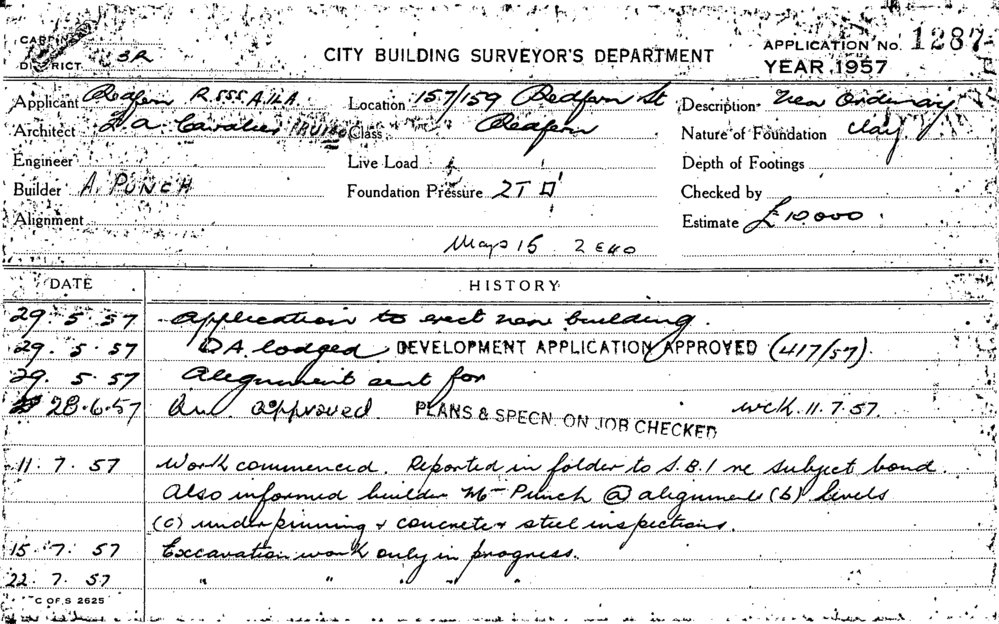 CARD No.
DISTRICT 3R
CITY BUILDING SURVEYOR'S DEPARTMENT
APPLICATION No. 1287
YEAR 1957
Applicant Redfern R.SSS A ILA Location 157/159 Redfern St Description New Ordinary
Architect L A. Cavalier Class Redfern Nature of Foundation Clay
Engineer Live Load Depth of Footings
Builder A. PUNCH Foundation Pressure 2T □' Checked by
Alignment Estimate £10000
Map 15 2
DATE HISTORY
29. 5. 57 Application to erect new building.
29. 5. 57 D.A. lodged DEVELOPMENT APPLICATION APPROVED (417/57).
29. 5. 57 Alignment sent for
28.6.57 approved. PLANS & SPECN. ON JOB CHECKED 11.7.57.
11. 7. 57 Work commenced. Reported in folder to S.B.I re subject bond.
Also informed builder Mr Punch @ alignment (b) levels
(c) underpinning & concrete & steel inspections.
15. 7. 57 Excavation work only in progress.
22. 7. 57 " " " " "
C OF S 2625